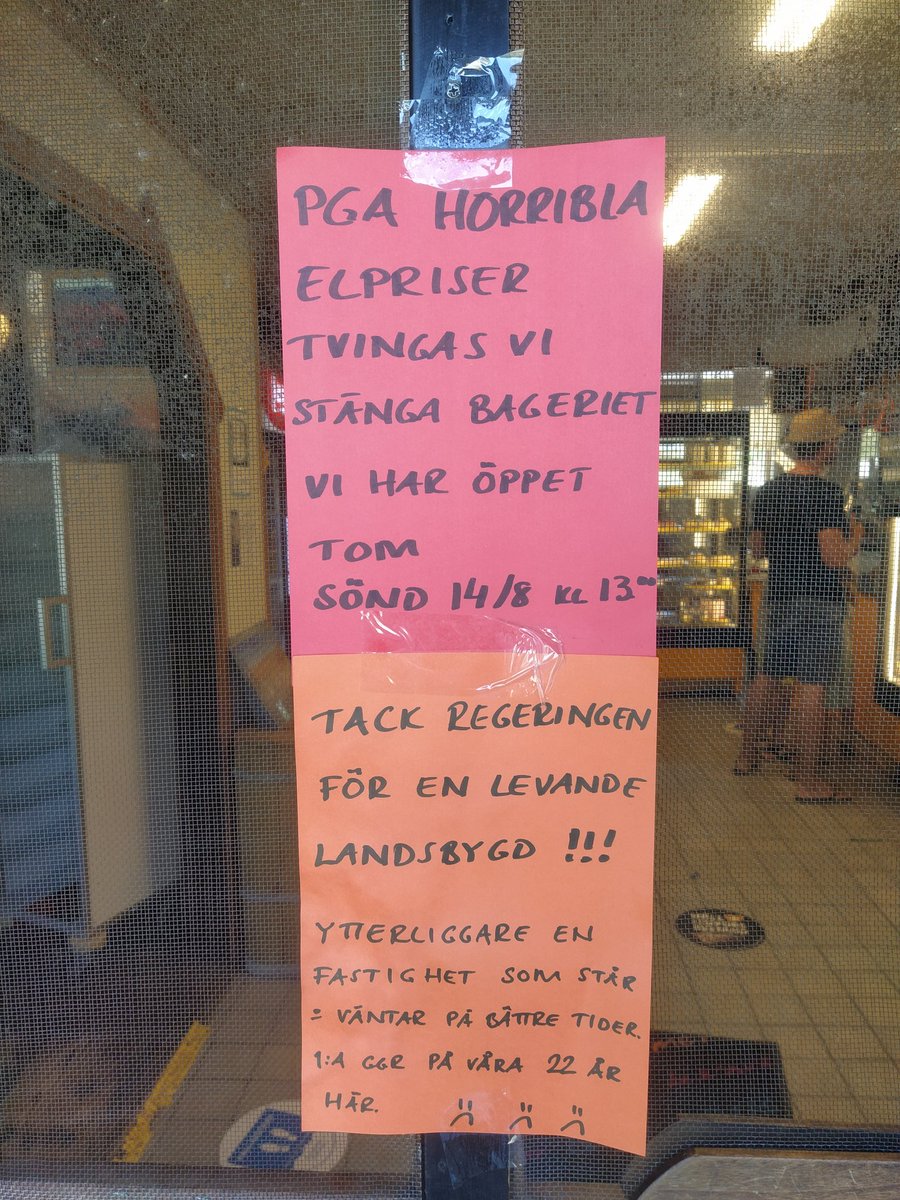 PGA HORRIBLA
ELPRISER
TVINGAS VI
STÄNGA BAGERIET
VI HAR ÖPPET
TOM
SÖND 14/8 KL 13⁰⁰
TACK REGERINGEN
FÖR EN LEVANDE
LANDSBYGD !!!
YTTERLIGGARE EN
FASTIGHET SOM STÅR
= VÄNTAR PÅ BÄTTRE TIDER.
1:A GGR PÅ VÅRA 22 ÅR
HÄR.